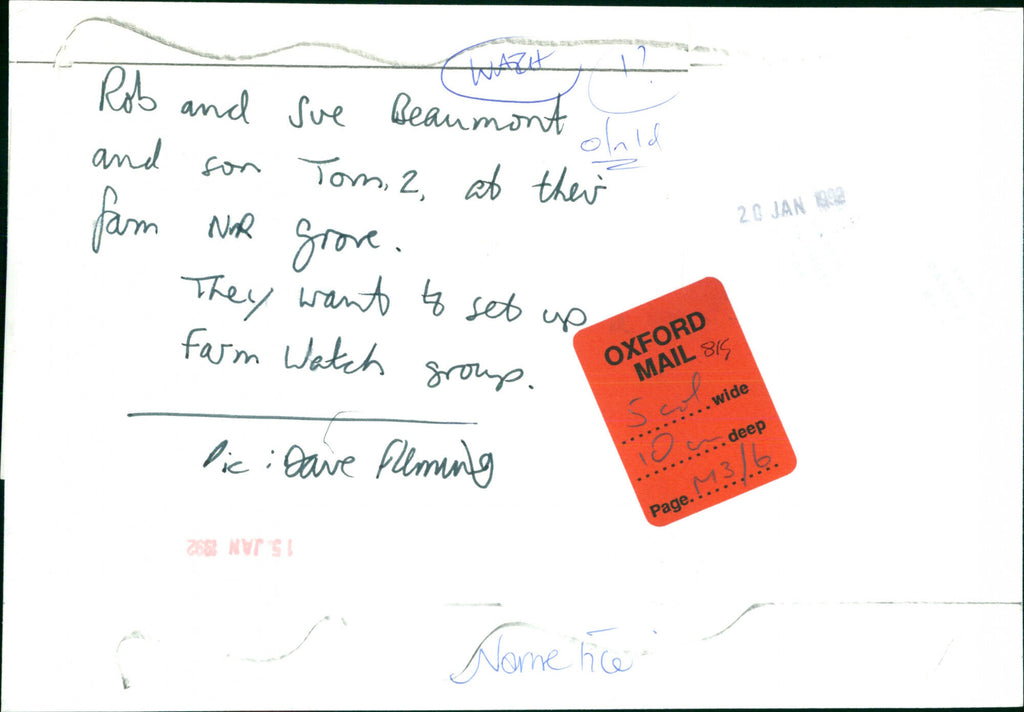 WATCH 1?
Rob and Sue Beaumont
and son Tom, 2, at their
farm NR Grove.
They want to set up
Farm Watch group.
Pic: Dave Fleming
20 JAN 1992
OXFORD
MAIL
5 col wide
10 cm deep
Page M3/6
15 JAN 1992
Name